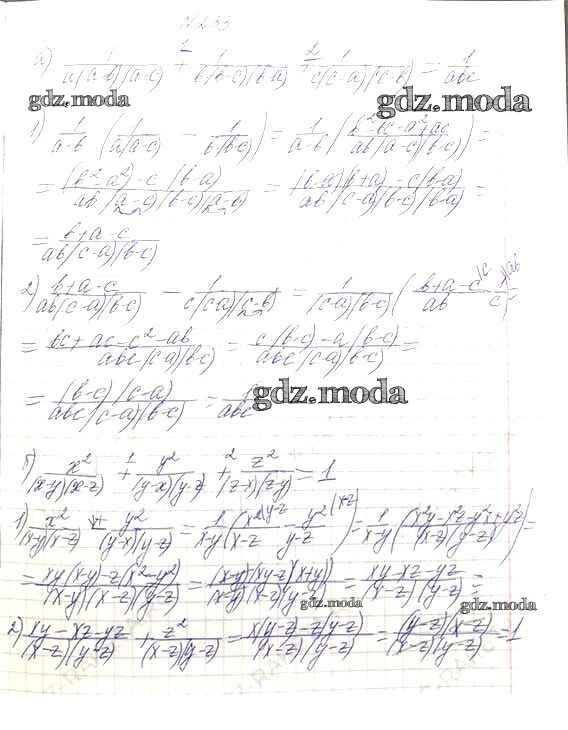 №233
а) 1/(a(a-b)(a-c)) + 1/(b(b-c)(b-a)) + 1/(c(c-a)(c-b)) = 1/(abc)
gdz.moda gdz.moda
1) 1/(a-b) (1/(a(a-c)) - 1/(b(b-c))) = 1/(a-b) ((b²-bc-a²+ac)/(ab(a-c)(b-c))) =
= ((b²-a²)-c(b-a))/(ab(a-c)(b-c)(a-b)) = ((b-a)(b+a)-c(b-a))/(ab(c-a)(b-c)(b-a)) =
= (b+a-c)/(ab(c-a)(b-c))
2) (b+a-c)/(ab(c-a)(b-c)) - 1/(c(c-a)(c-b)) = 1/((c-a)(b-c)) ((b+a-c)/(ab) - 1/c) =
= (bc+ac-c²-ab)/(abc(c-a)(b-c)) = (c(b-c)-a(b-c))/(abc(c-a)(b-c)) =
= ((b-c)(c-a))/(abc(c-a)(b-c)) = 1/(abc)
gdz.moda
б) x²/((x-y)(x-z)) + y²/((y-x)(y-z)) + z²/((z-x)(z-y)) = 1
1) x²/((x-y)(x-z)) + y²/((y-x)(y-z)) = 1/(x-y) (x²/(x-z) - y²/(y-z)) = 1/(x-y) ((x²y-x²z-y²x+y²z)/((x-z)(y-z))) =
= (xy(x-y)-z(x²-y²))/((x-y)(x-z)(y-z)) = ((x-y)(xy-z)(x+y))/((x-y)(x-z)(y-z)) = (xy-xz-yz)/((x-z)(y-z)) =
gdz.moda gdz.moda
2) (xy-xz-yz)/((x-z)(y-z)) + z²/((x-z)(y-z)) = (x(y-z)-z(y-z))/((x-z)(y-z)) = ((y-z)(x-z))/((x-z)(y-z)) = 1
gdz.moda